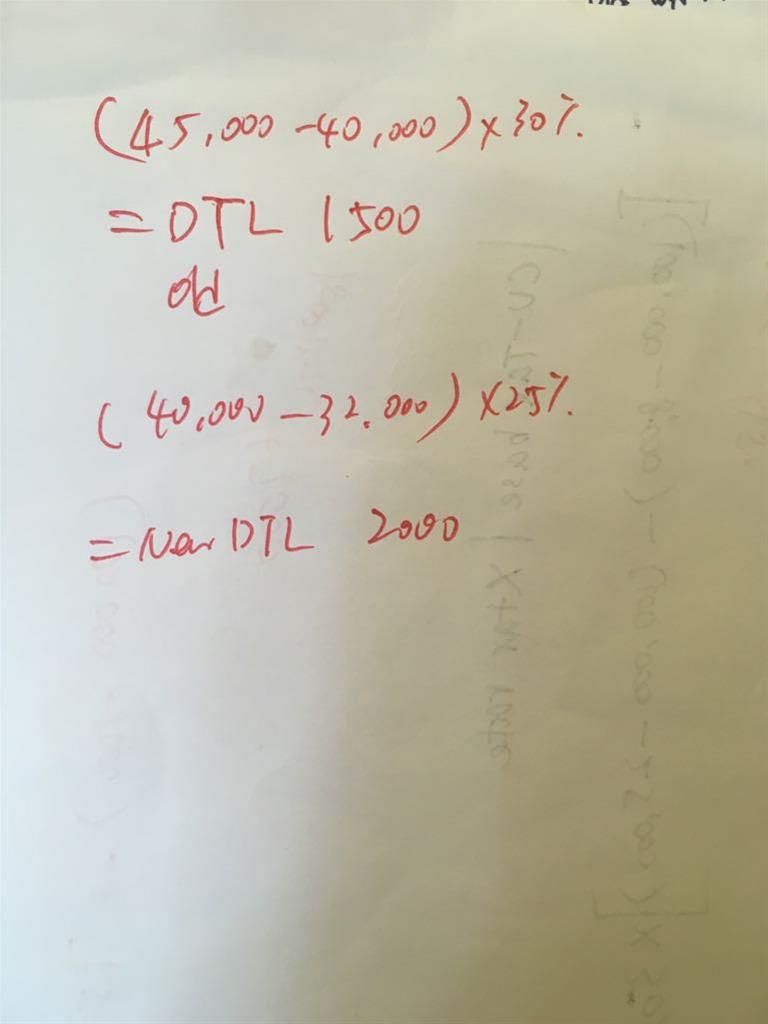 (45,000 - 40,000) × 30%.
= DTL 1500
old
(40,000 - 32.000) × 25%.
= New DTL 2000